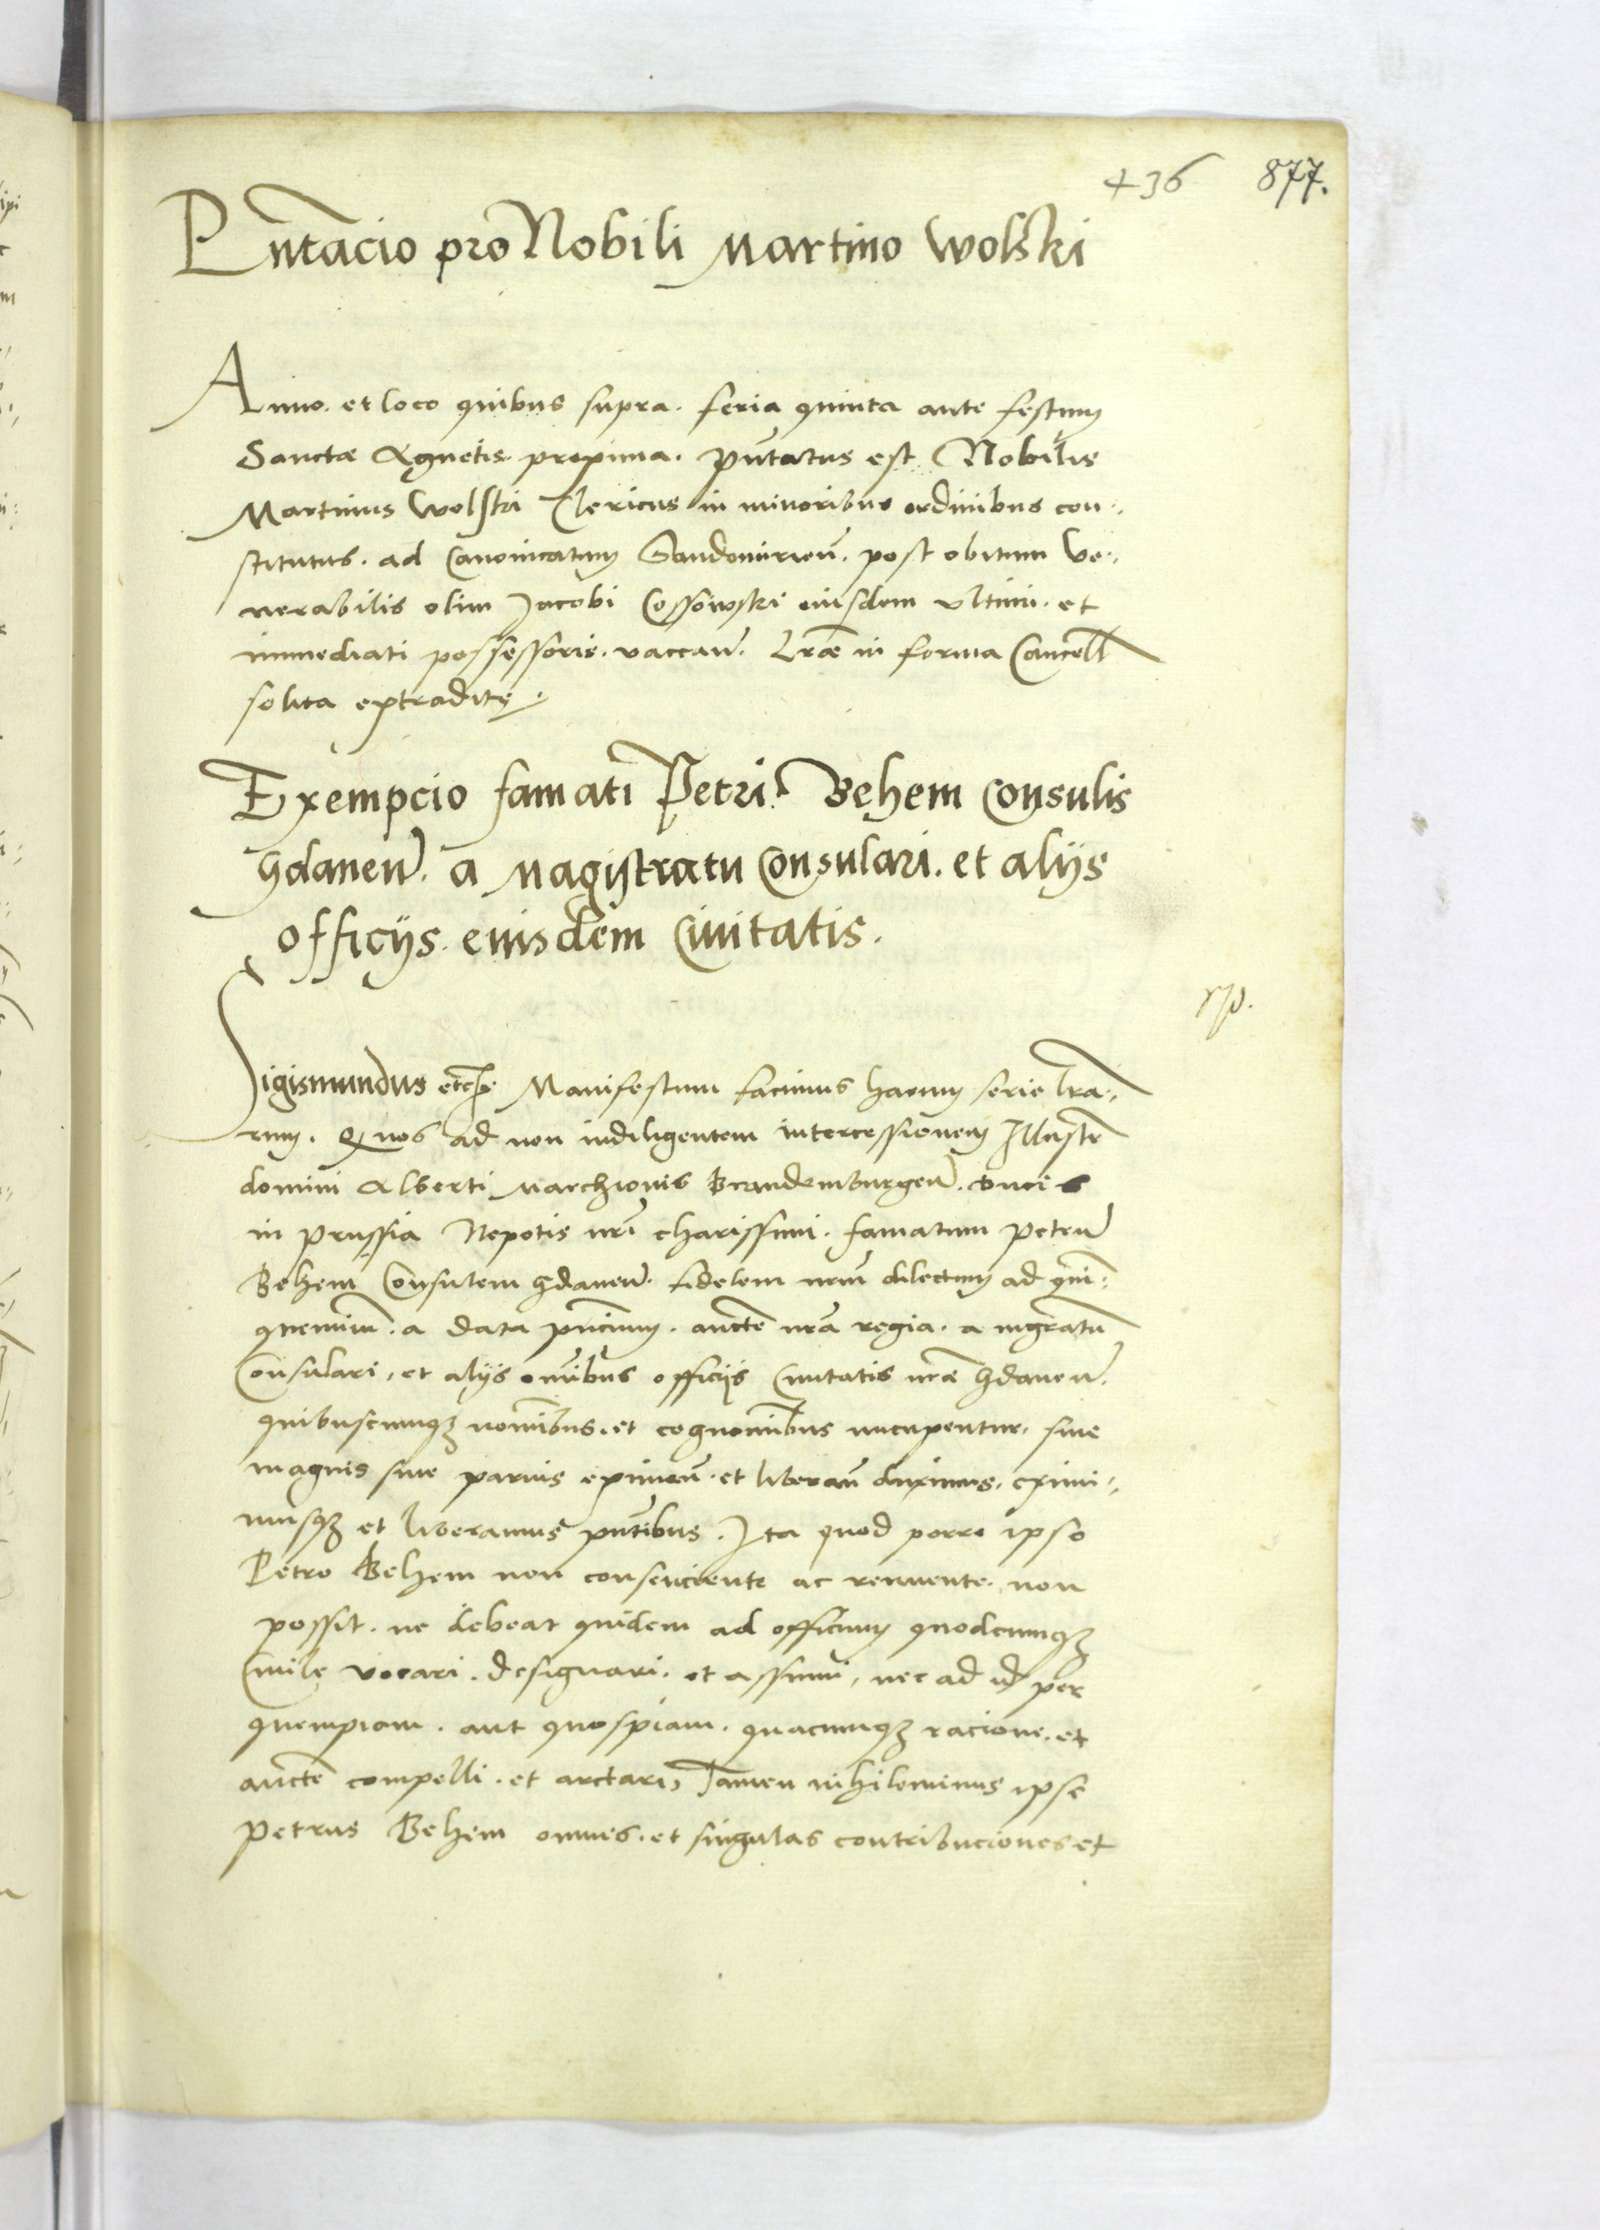 436 877.
Pntacio pro Nobili Martino Wolski
Anno. et loco quibus supra. feria quinta ante festum
Sanctæ Agnetis proxima. pntatus est Nobilis
Martinus Wolski Clericus in minoribus ordinibus con-
stitutus. ad Canonicatum Sandomirien. post obitum Ve-
nerabilis olim Jacobi Cossowski eiusdem ultimi. et
immediati possessoris. vaccan. Lræ in forma Cancell
solita extraditę.
Exempcio famati Petri Behem Consulis
Gdanen. a Magistratu Consulari. et alijs
officijs. eiusdem Civitatis.
Sigismundus etc. Manifestum facimus harum serie lra-
rum. Q nos ad non indiligentem intercessionem Illustr
domini Alberti Marchionis Brandemburgen. Ducis
in Prussia Nepotis nri charissimi. famatum Petrum
Behem Consulem Gdanen. fidelem nrum dilectum ad quin-
quennium. a data pncium. aucte nra regia. a mgratu
Consulari, et alijs omibus officijs Civitatis nræ Gdanen.
quibuscumqз nomibus. et cognomibus nuncupentur. sive
magnis sive parvis eximen. et liberan duximus. eximi-
musqз et liberamus pntibus. Ita quod porro ipso
Petro Behem non consenciente ac renuente. non
possit. ne debeat quidem ad officium quodcumqз
Civile vocari. designari. et assumi, nec ad id per
quempiam. aut quospiam. quacumqз racione. et
aucte compelli. et arctari, Tamen nihilominus ipse
Petrus Behem omnes. et singulas contribuciones et